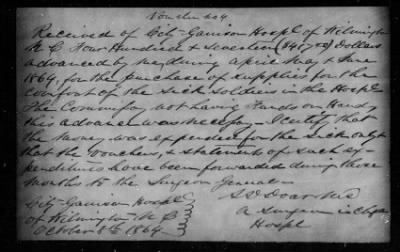 Voucher 4
Received of City-Garrison Hospl of Wilmington
N C Four Hundred & Seventeen ($417 00) Dollars
advanced by me, during April May & June
1864, for the purchase of supplies for the
comfort of the sick soldiers in the Hospl
The Commissary not having Funds on Hand,
this advance was necessary - I certify that
the Money was expended for the sick only &
that the Vouchers, & statements of such ex-
penditures have been forwarded during those
Months to the Surgeon General -
City-Garrison Hospl
of Wilmington N C
October 1864
A Surgeon in Chge
Hospl